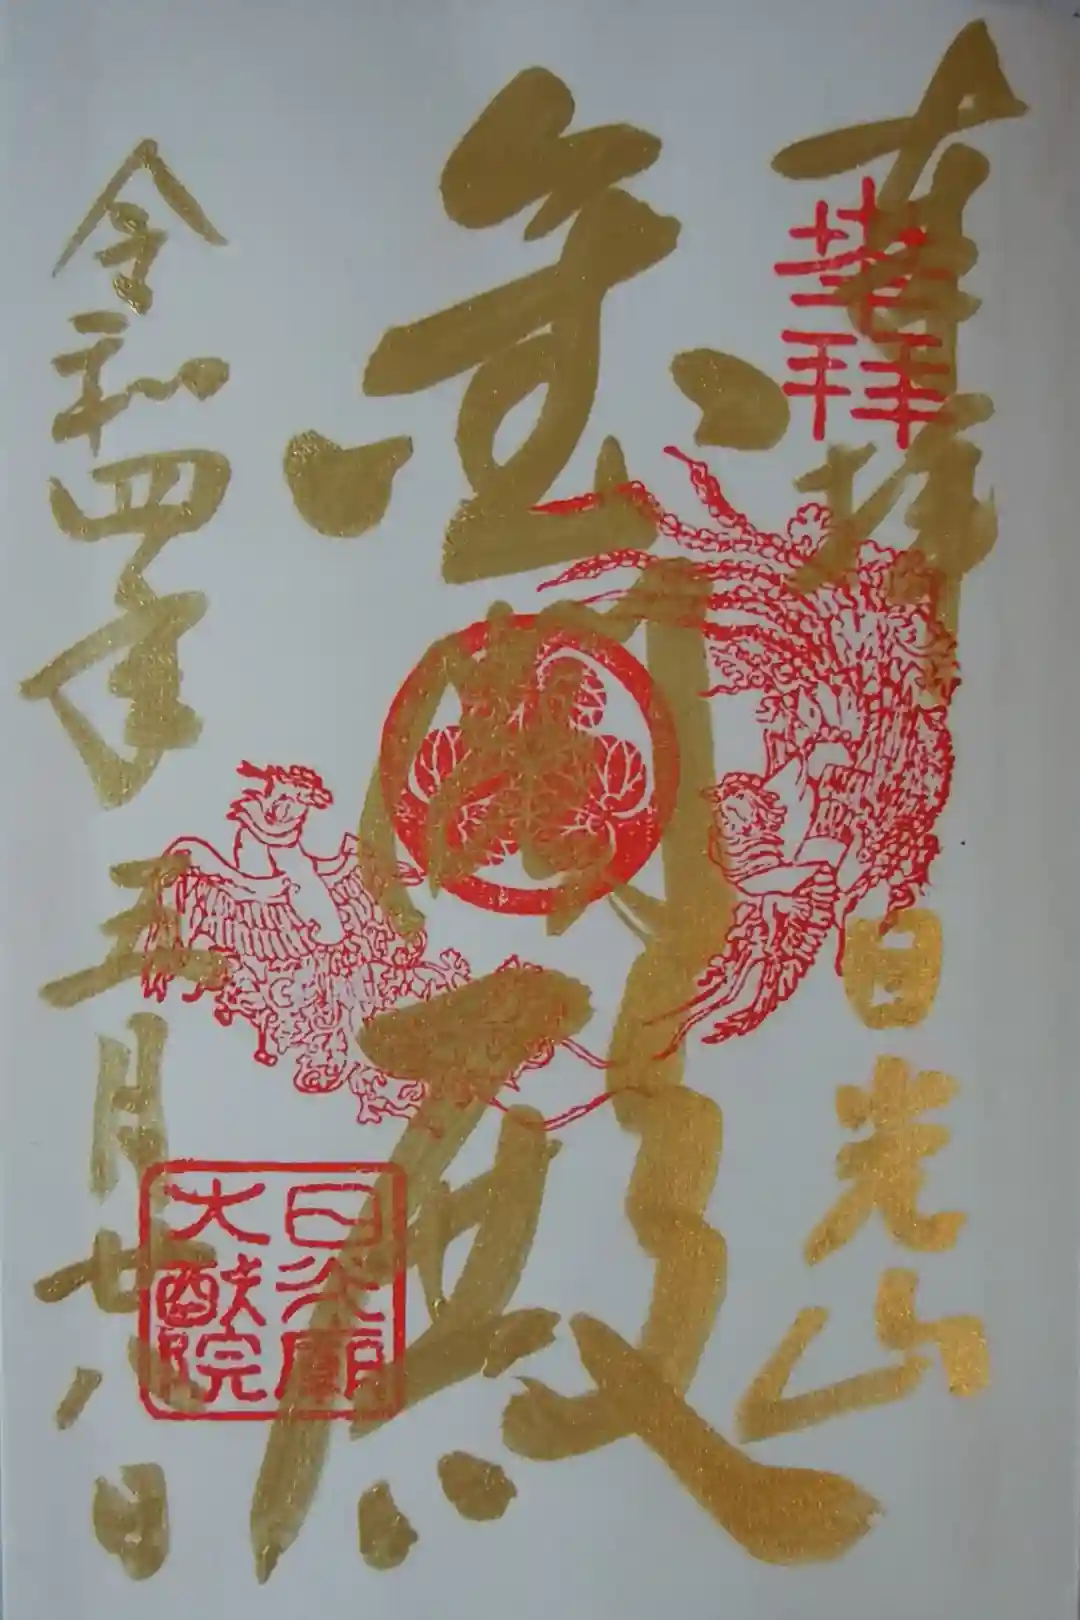 奉拝
日光山
金閣殿
令和四年五月廿八日
日光廟
大猷院